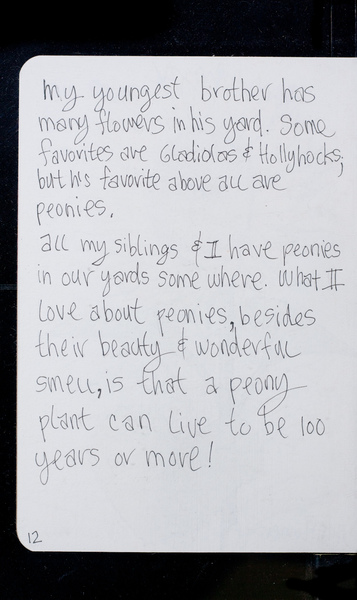 my youngest brother has
many flowers in his yard. Some
favorites are Gladiolas & Hollyhocks;
but his favorite above all are
peonies.
all my siblings & I have peonies
in our yards some where. What I
love about peonies, besides
their beauty & wonderful
smell, is that a peony
plant can live to be 100
years or more!
12